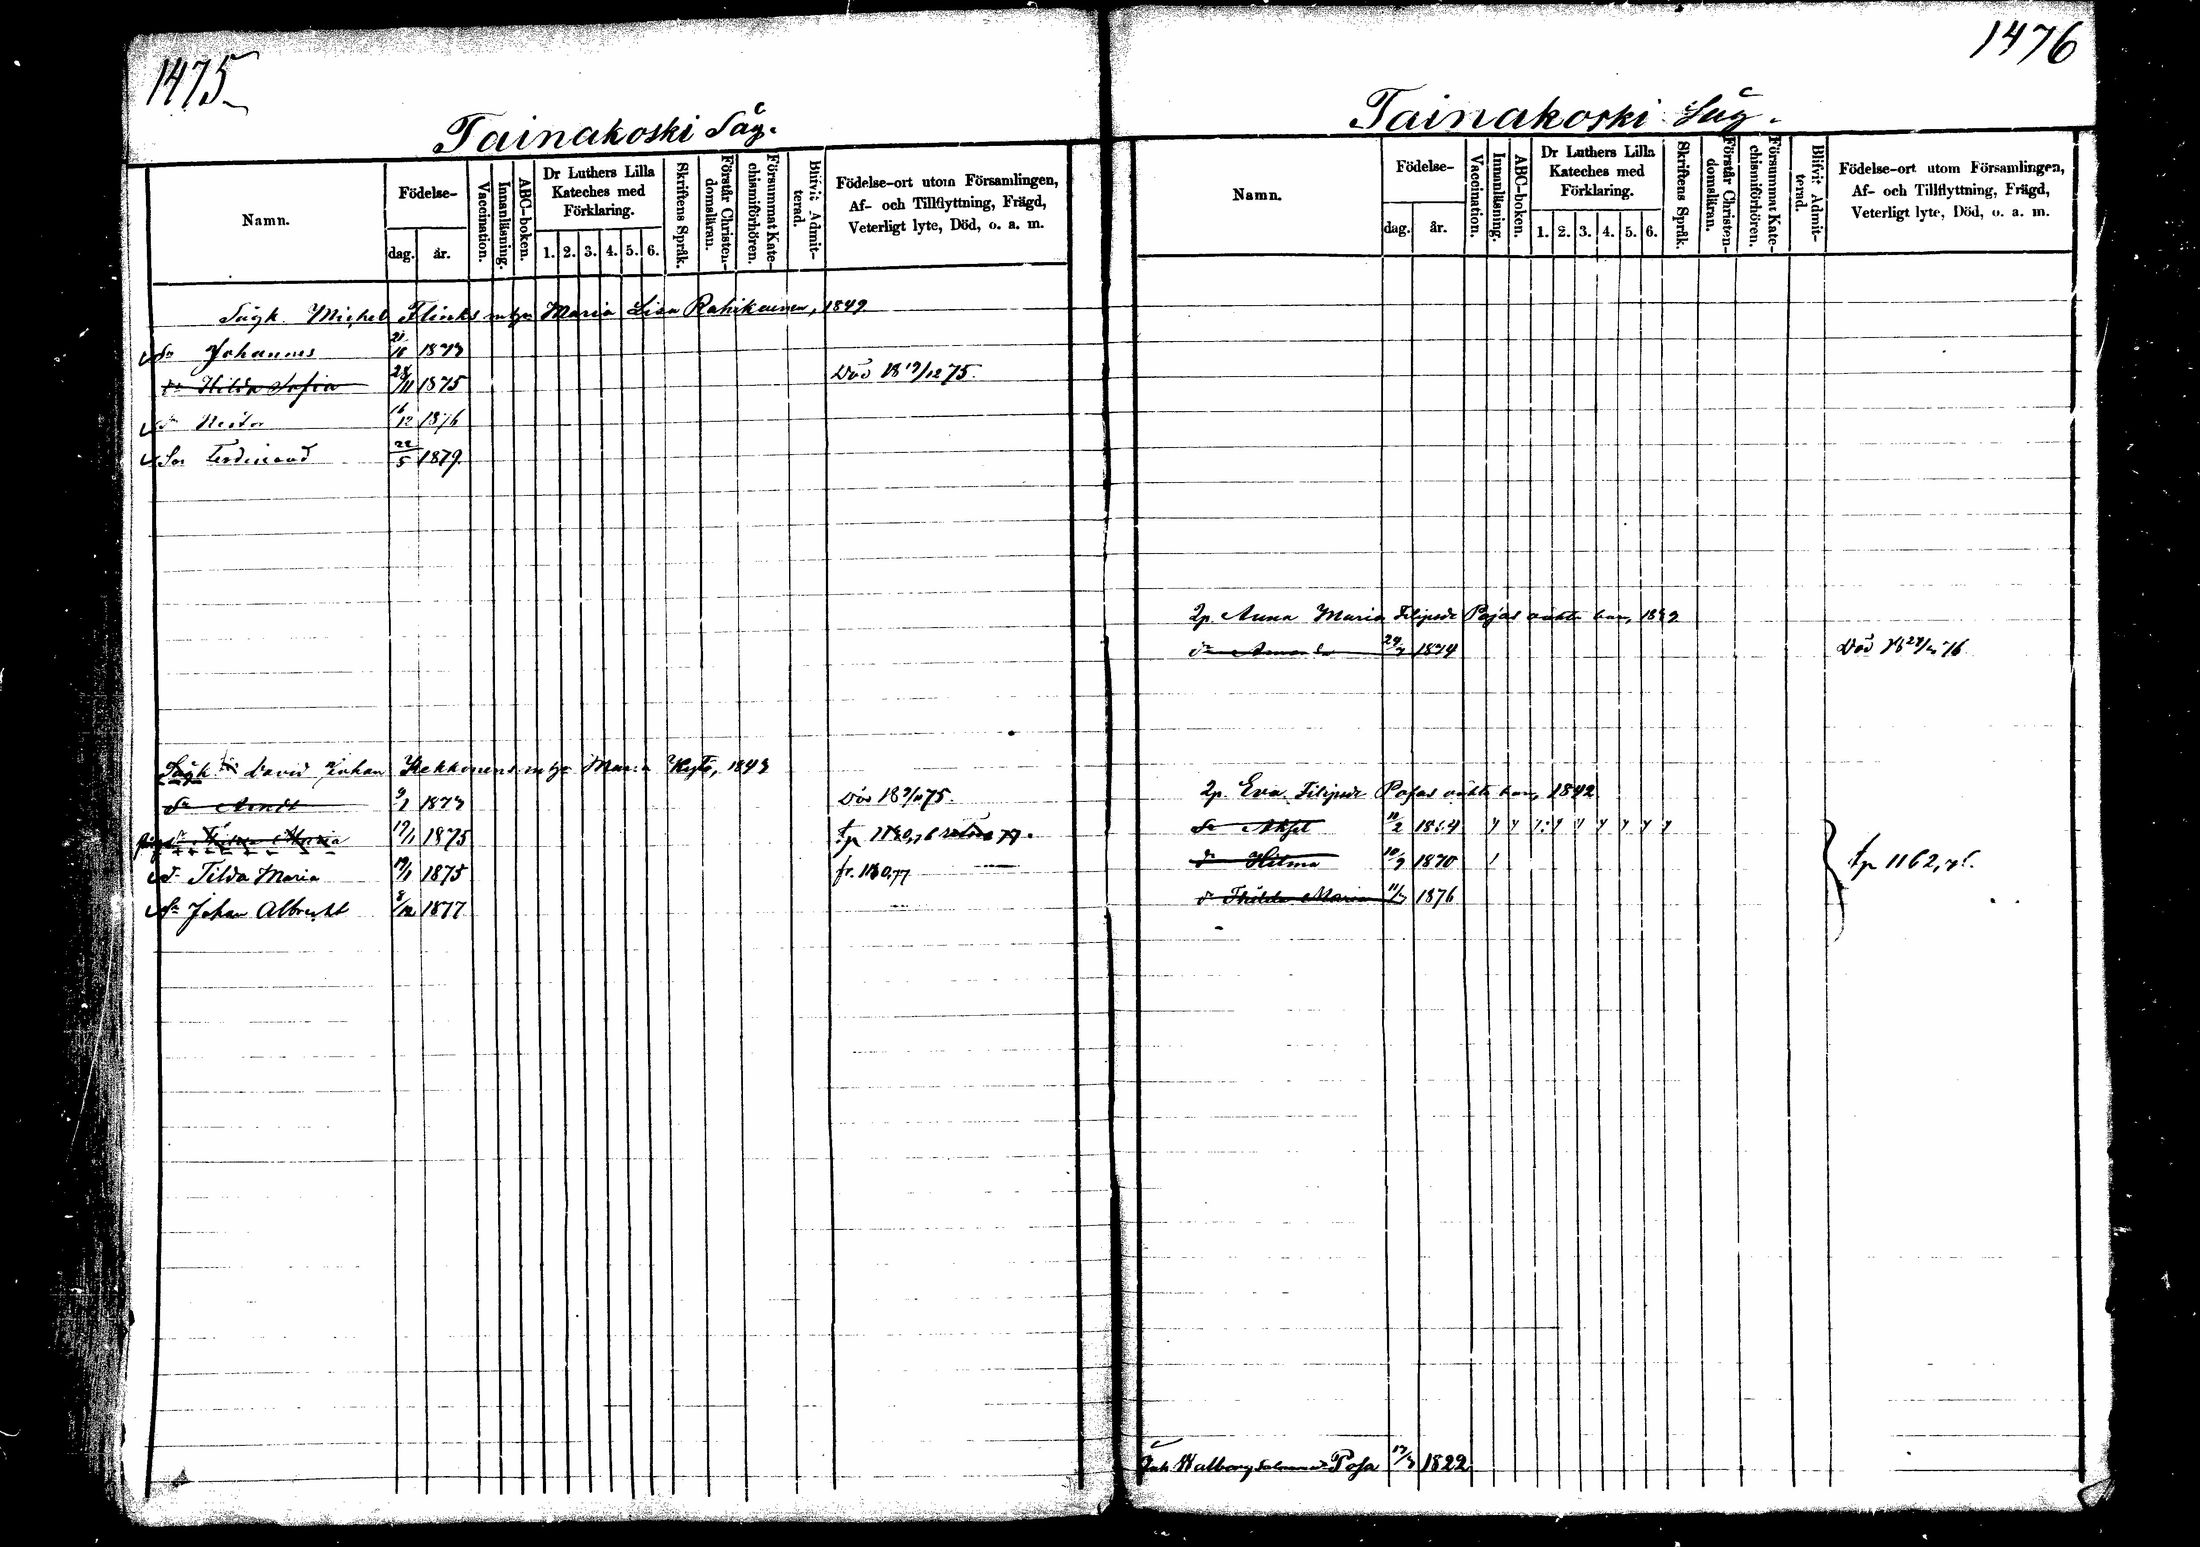 1475
Tainakoski Såg.
Namn.
Födelse-
dag.
år.
Vaccination.
Innanläsning.
ABC-boken.
Dr Luthers Lilla
Kateches med
Förklaring.
1. 2. 3. 4. 5. 6.
Skriftens Språk.
Förstår Christen-
domsläran.
Försummat Kate-
chismiförhören.
Blifvit Admit-
terad.
Födelse-ort utom Församlingen,
Af- och Tillflyttning, Frägd,
Veterligt lyte, Död, o. a. m.
Sågk. Michel Flinks Maria Lisa Rahikainen, 1849
Sn Johannes 1873
dr Hilda Sofia 28/11 1875 Död 18 19/12 75.
Sn Nestor 16/12 1876
Sn Ferdinand 22/5 1879.
Sågk. David Johan Kekkonens Maria 1843
Sn 9/1 1873 Död 18 75.
dr Maria 19/1 1875
dr Tilda Maria 19/1 1875 fr. 1180,77
Sn Johan Albrecht 8/12 1877
1476
Tainakoski Såg.
Namn.
Födelse-
dag.
år.
Vaccination.
Innanläsning.
ABC-boken.
Dr Luthers Lilla
Kateches med
Förklaring.
1. 2. 3. 4. 5. 6.
Skriftens Språk.
Förstår Christen-
domsläran.
Försummat Kate-
chismiförhören.
Blifvit Admit-
terad.
Födelse-ort utom Församlingen,
Af- och Tillflyttning, Frägd,
Veterligt lyte, Död, o. a. m.
Qp. Anna Maria Filipsdr Pajas oäkta barn,
dr 1874 Död 76
Qp. Eva Filipsdr oäkta barn, 1842
Sn Aksel 10/2 1864
dr Hilma 10/9 1870 tp 1162,
dr Thilda Maria 1876
Walborg Posa 1822